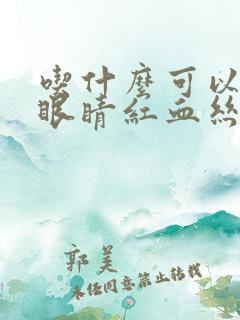 喫什麼可以
眼睛紅血絲
郭美
未經同意禁止轉載